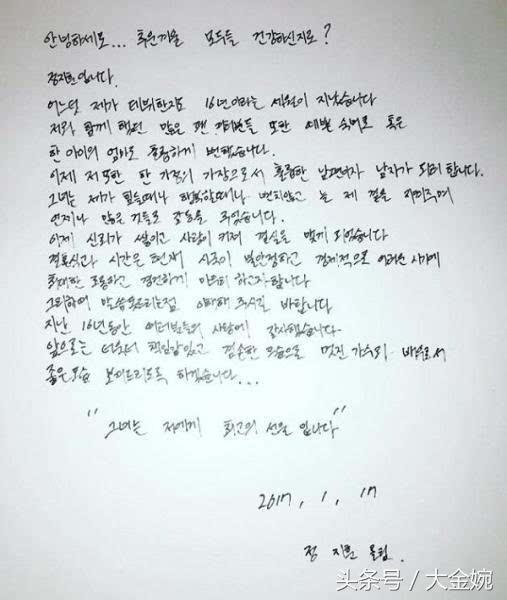 안녕하세요... 추운겨울 모두들 건강하신지요?
정지훈입니다.
어느덧 제가 데뷔한지도 16년이라는 세월이 지났습니다
저와 함께 했던 많은 팬 여러분들 또한 예쁜 숙녀로 혹은
한 아이의 엄마로 훌륭하게 변했습니다.
이제 저 또한 한 가정의 가장으로서 훌륭한 남편이자 남자가 되려 합니다.
그녀는 제가 힘들때나 행복할때나 변치않고 늘 제 곁을 지켜주며
언제나 많은 것들로 감동을 주었습니다.
이제 신뢰가 쌓이고 사랑이 커져 결실을 맺게 되었습니다
결혼식과 시간은 현재 시국이 불안정하고 경제적으로 어려운 시기에
최대한 조용하고 경건하게 마무리 하고자합니다
그리하여 말씀못드리는점 이해해 주시길 바랍니다
지난 16년동안 여러분들의 사랑에 감사했습니다.
앞으로는 더욱더 책임감있고 겸손한 모습으로 멋진 가수와 배우로서
좋은모습 보여드리도록 하겠습니다...
"그녀는 저에게 최고의 선물 입니다"
2017. 1. 17
정 지훈 올림.
头条号 / 大金婉